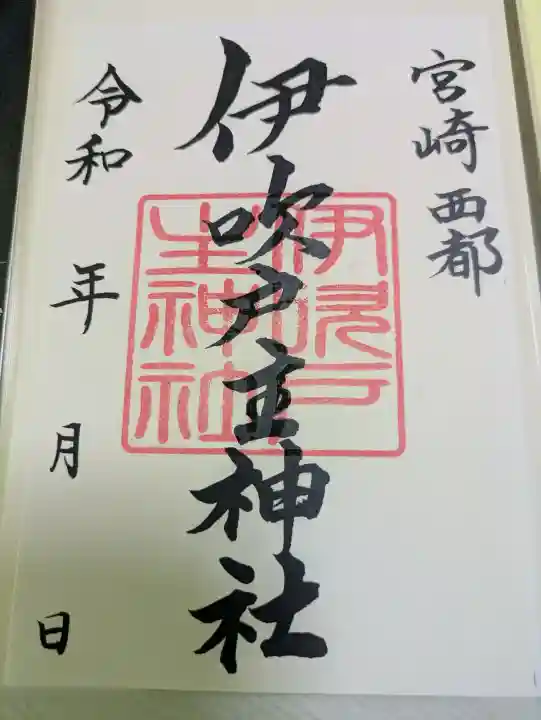 宮崎 西都
伊吹戸主神社
伊吹戸
主神社
令和 年 月 日